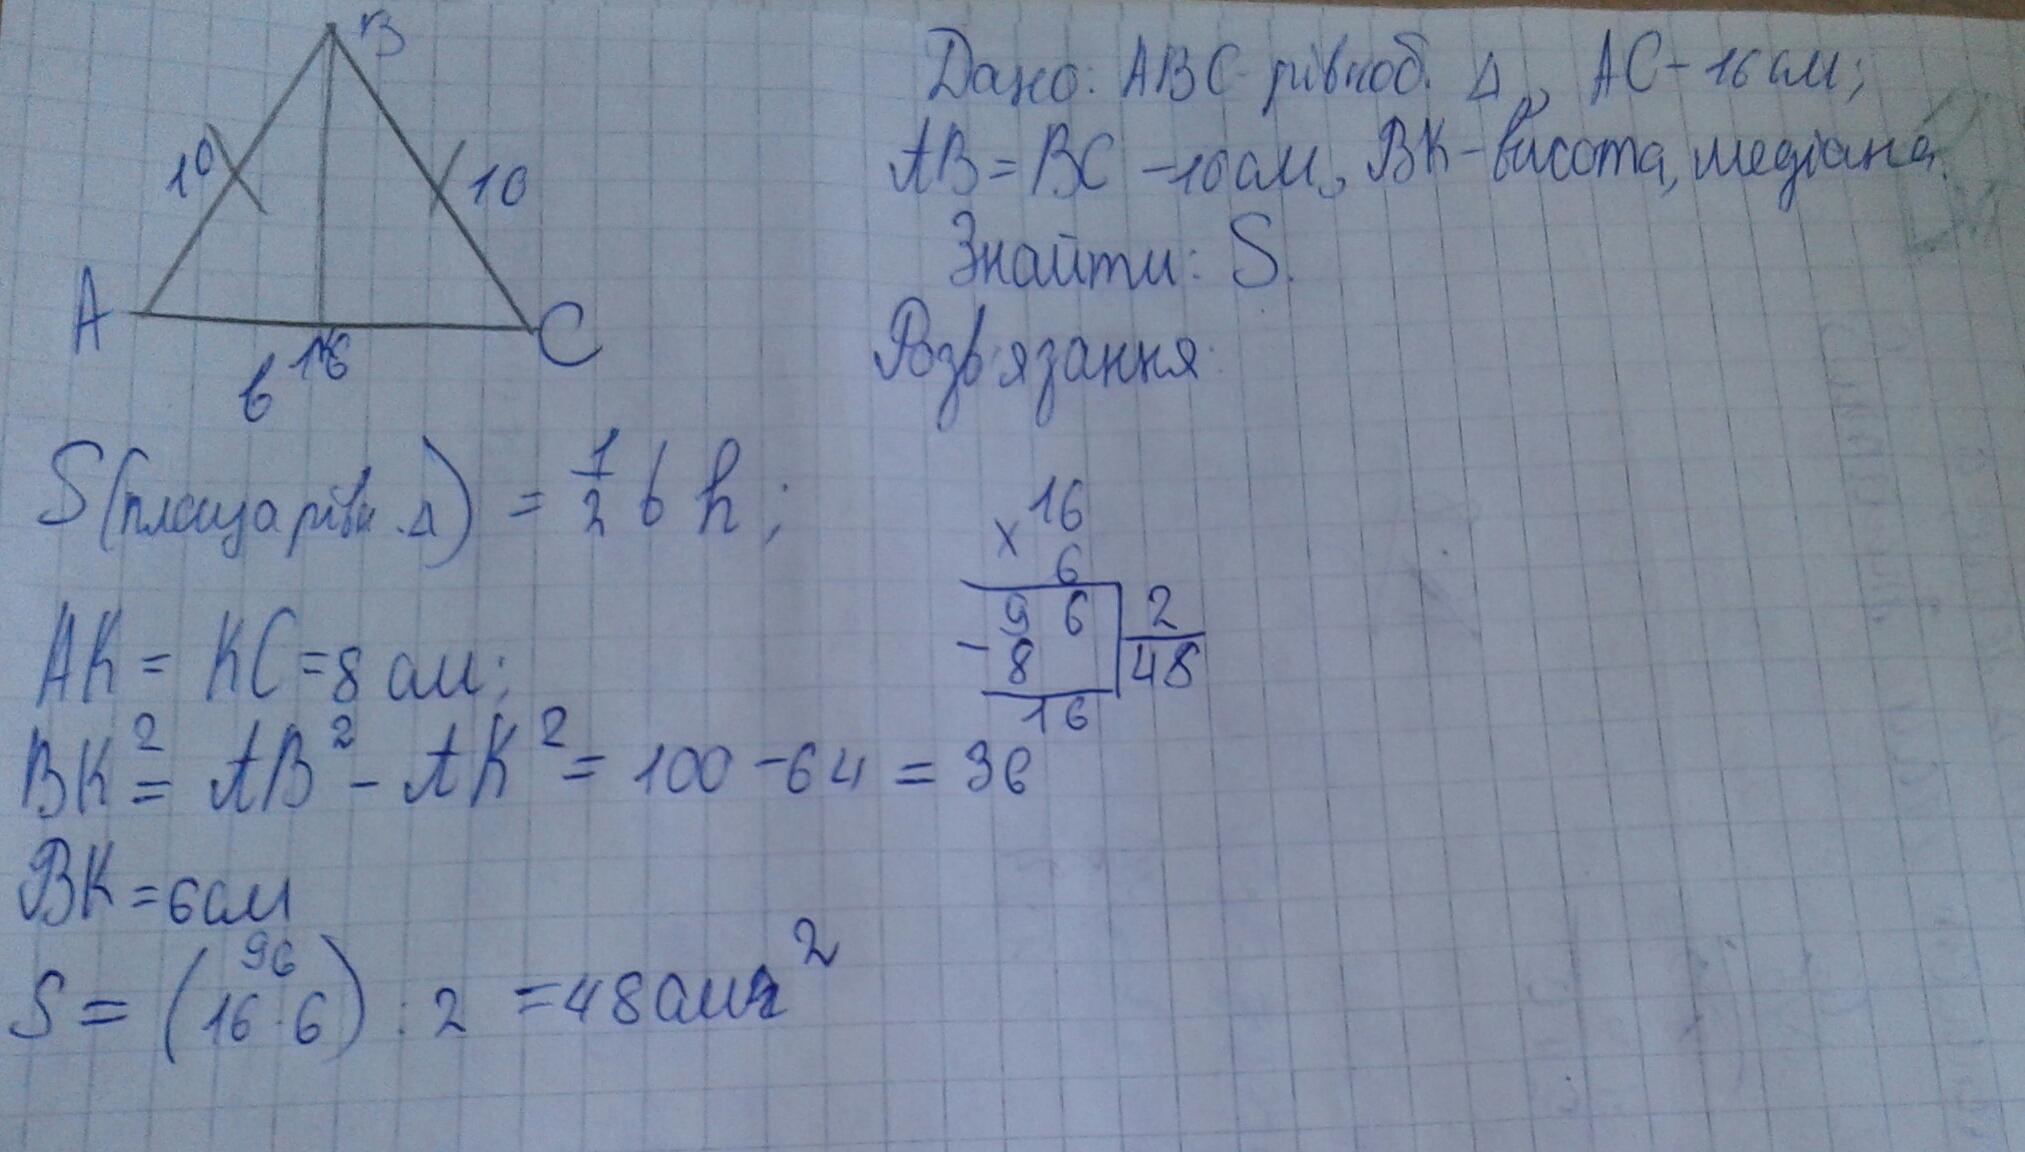 B
10
10
A
K
16
C
b
Дано: ABC рівноб. Δ, AC - 16 см;
AB = BC - 10 см, BK - висота, медіана.
Знайти: S.
Розв'язання:
S (площа рівн. Δ) = 1/2 b h;
AK = KC = 8 см;
BK² = AB² - AK² = 100 - 64 = 36
BK = 6 см
96
S = (16 · 6) : 2 = 48 см²
× 16
6
96 | 2
- 8 | 48
16